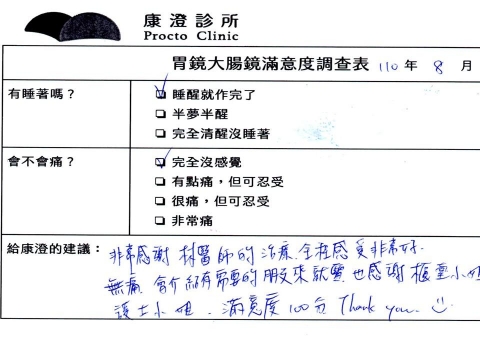 康澄診所
Procto Clinic
胃鏡大腸鏡滿意度調查表 110 年 8 月
有睡著嗎？
睡醒就作完了
半夢半醒
完全清醒沒睡著
會不會痛？
完全沒感覺
有點痛，但可忍受
很痛，但可忍受
非常痛
給康澄的建議：非常感謝 林醫師的治療 全程感受非常好.
無痛 會介紹有需要的朋友來就醫 也感謝 櫃臺小姐
護士小姐 . 滿意度 100分 Thank you.